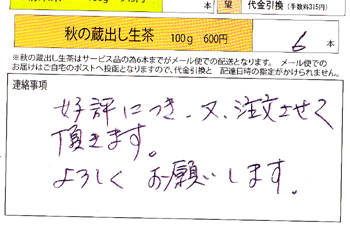 望 代金引換（手数料315円）
秋の蔵出し生茶 100g 600円 6本
※秋の蔵出し生茶はサービス品の為6本までがメール便での配送となります。 メール便での
お届けはご自宅のポストへ投函となりますので、代金引換と 配達日時の指定がかけられません。
連絡事項
好評につき、又、注文させて
頂きます。
よろしく お願いします。